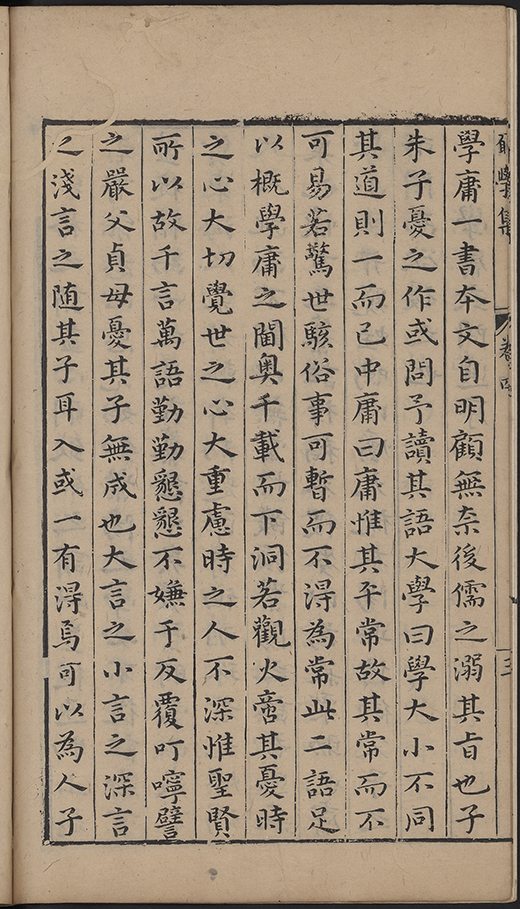 學庸一書本文自明顧無奈後儒之溺其旨也子
朱子憂之作或問予讀其語大學曰學大小不同
其道則一而已中庸曰庸惟其平常故其常而不
可易若驚世駭俗事可暫而不得為常此二語足
以概學庸之閫奧千載而下洞若觀火啻其憂時
之心大切覺世之心大重慮時之人不深惟聖賢
所以故千言萬語勤勤懇懇不嫌于反覆叮嚀譬
之嚴父貞母憂其子無成也大言之小言之深言
之淺言之隨其子耳入或一有得焉可以為人子